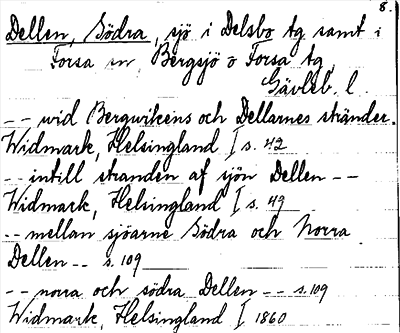 8.
Dellen, Södra, sjö i Delsbo tg samt i
Forsa sn, Bergsjö o Forsa tg,
Gävleb. l.
-- wid Bergwikens och Dellarnes stränder.
Widmark, Helsingland I s. 42
-- intill stranden af sjön Dellen --
Widmark, Helsingland I s. 49
-- mellan sjöarne Södra och Norra
Dellen -- s. 109
-- norra och södra Dellen -- s. 109
Widmark, Helsingland I 1860